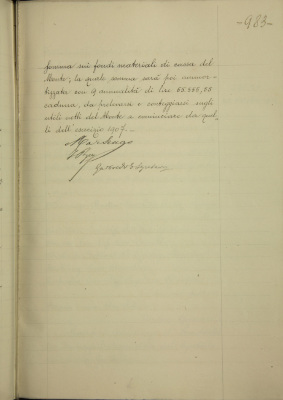 -983-
somma sui fondi materiali di cassa del
Monte, la quale somma sarà poi ammor-
tizzata con 9 annualità di lire 55.555,55
caduna, da prelevarsi e conteggiarsi sugli
utili netti del Monte a cominciare da quel-
li dell'esercizio 1907.